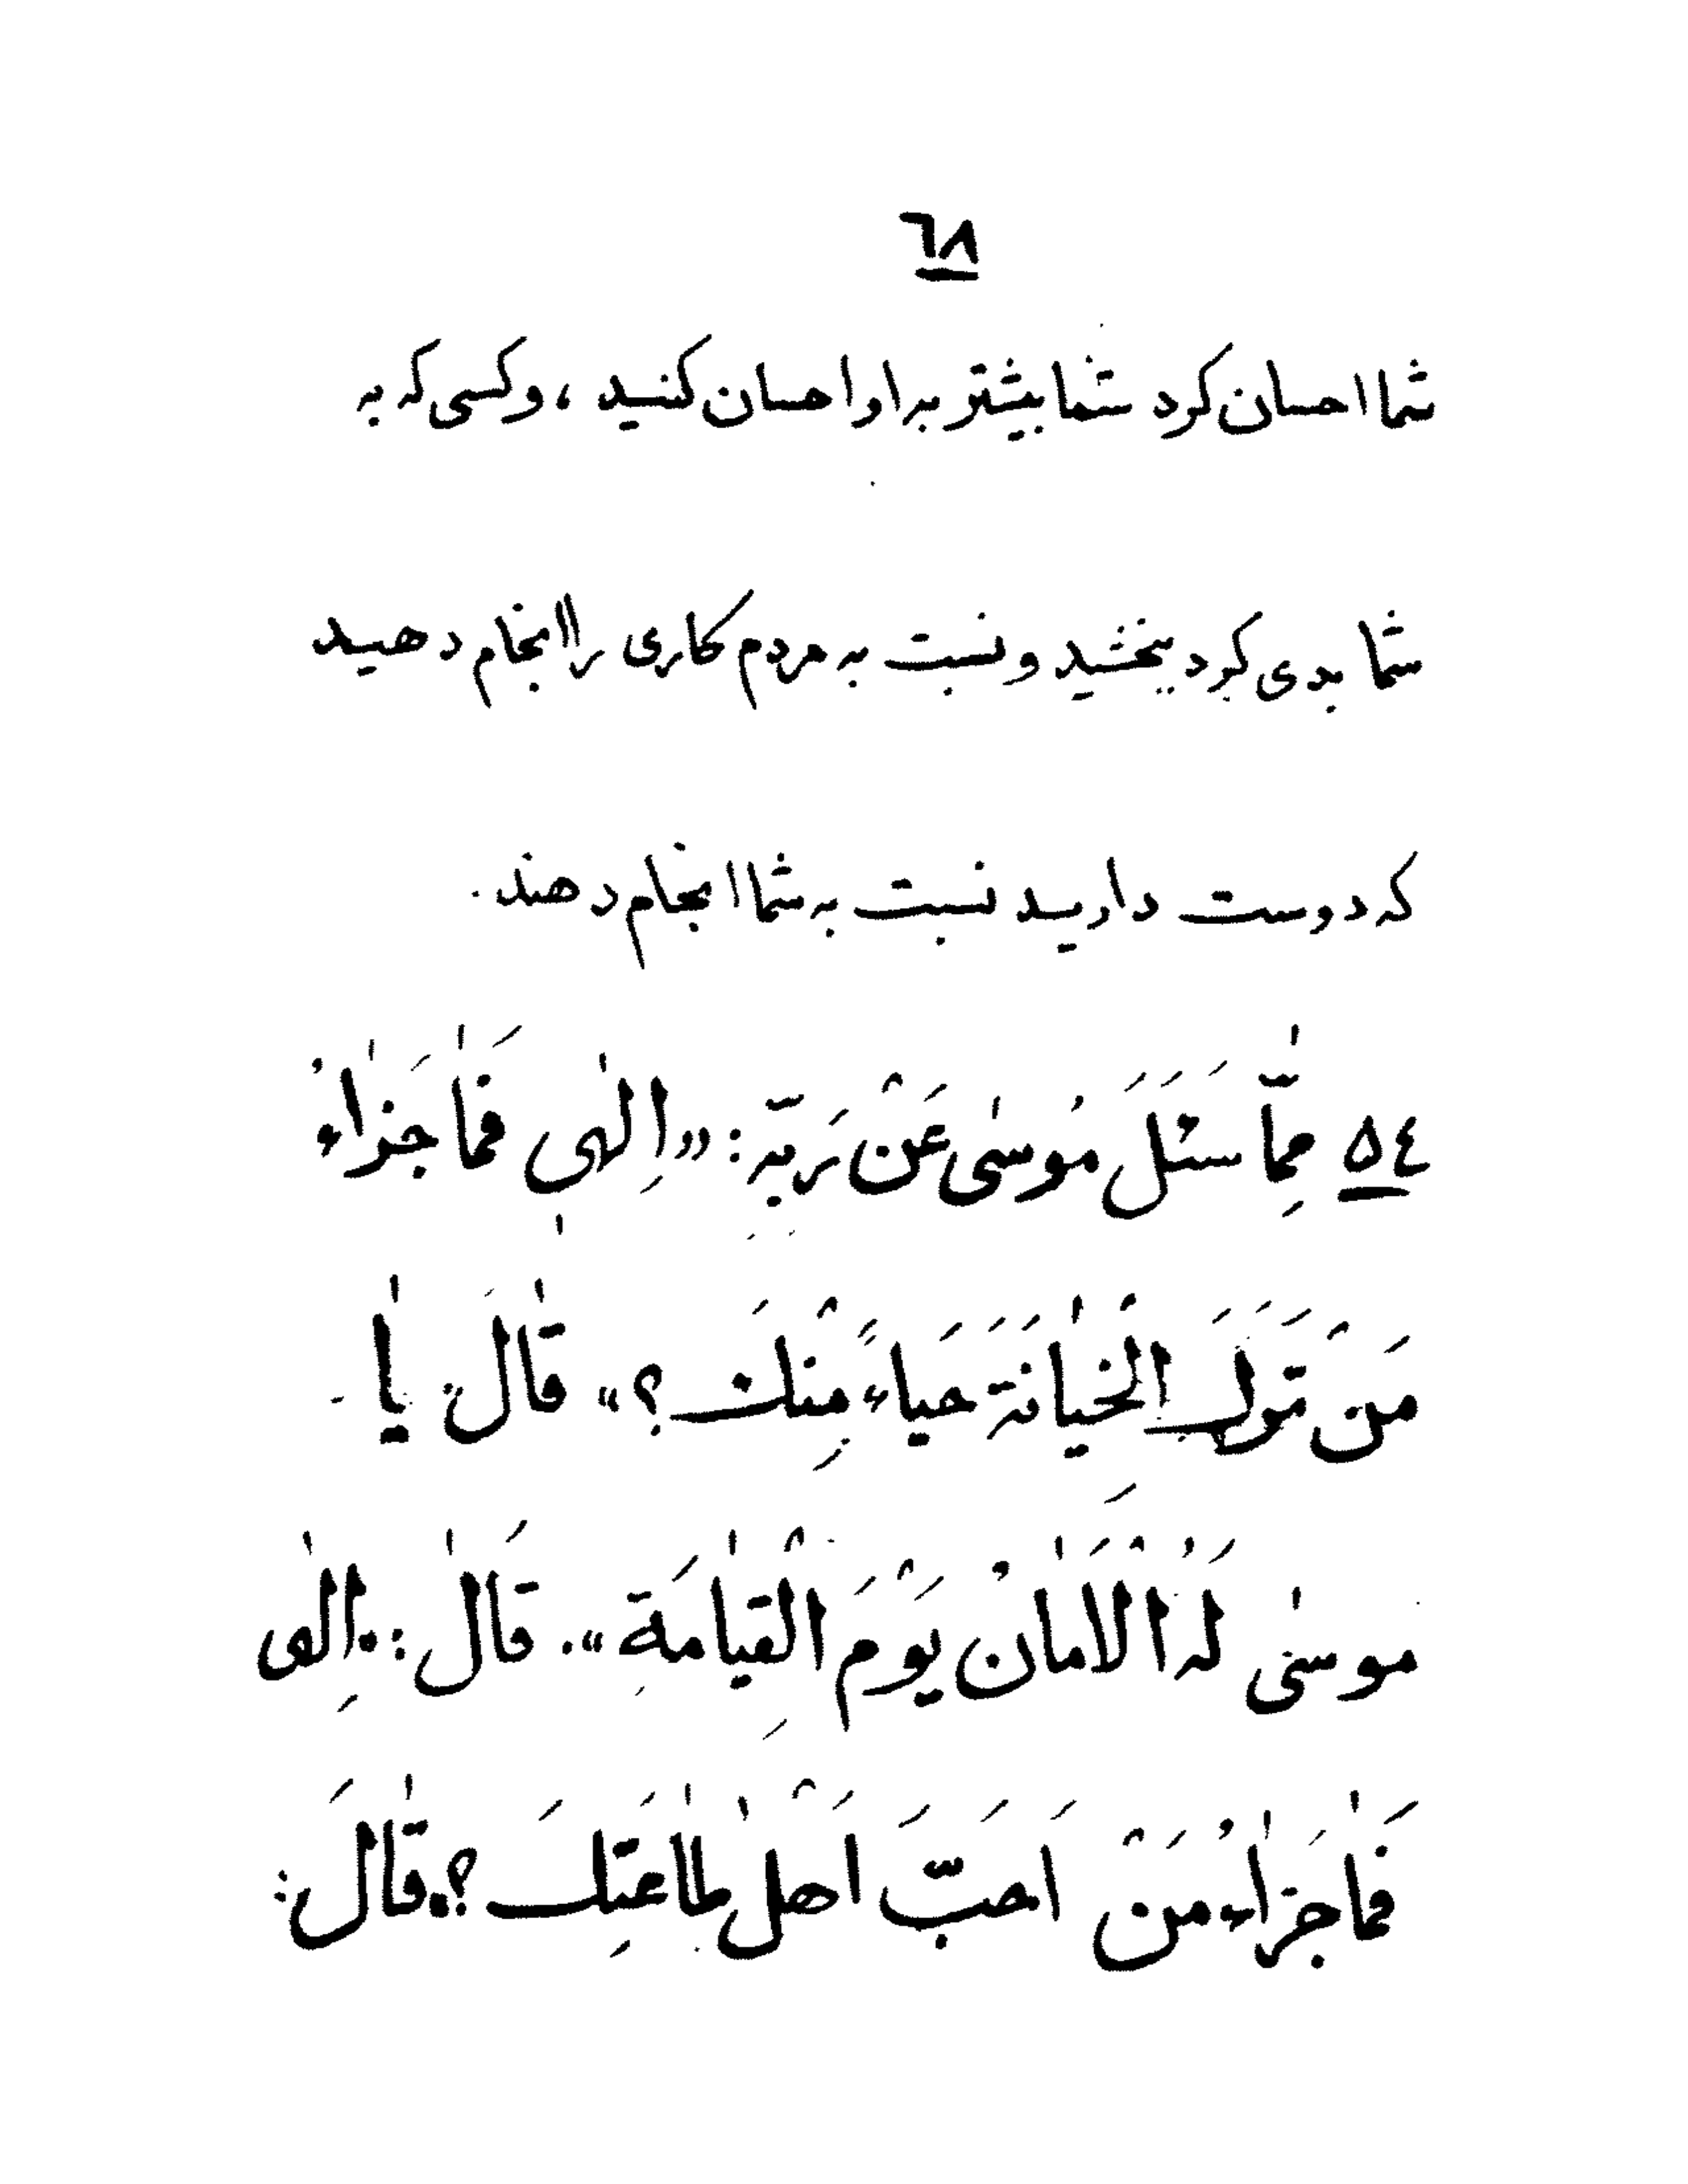 ٦٨
شما احسان کرد شما بیشتر به او احسان کنید ، و کسی که به
شما بدی کرد ببخشید و نسبت به مردم کاری را انجام دهید
که دوست دارید نسبت به شما انجام دهند .
٥٤ مِمّٰا سَئَلَ مُوسٰى عَنْ رَبِّهِ : «اِلٰهِي فَمٰا جَزٰاءُ
مَنْ تَرَكَ الْخِيٰانَةَ حَيٰاءً مِنْكَ ؟» قٰالَ : يٰا -
موسٰى لَهُ الْاَمٰانُ يَوْمَ الْقِيٰامَةِ» . قَالَ : «اِلٰهى
فَمٰا جَزٰاءُ مَنْ اَحَبَّ اَهْلَ طٰاعَتِكَ ؟» قٰالَ :